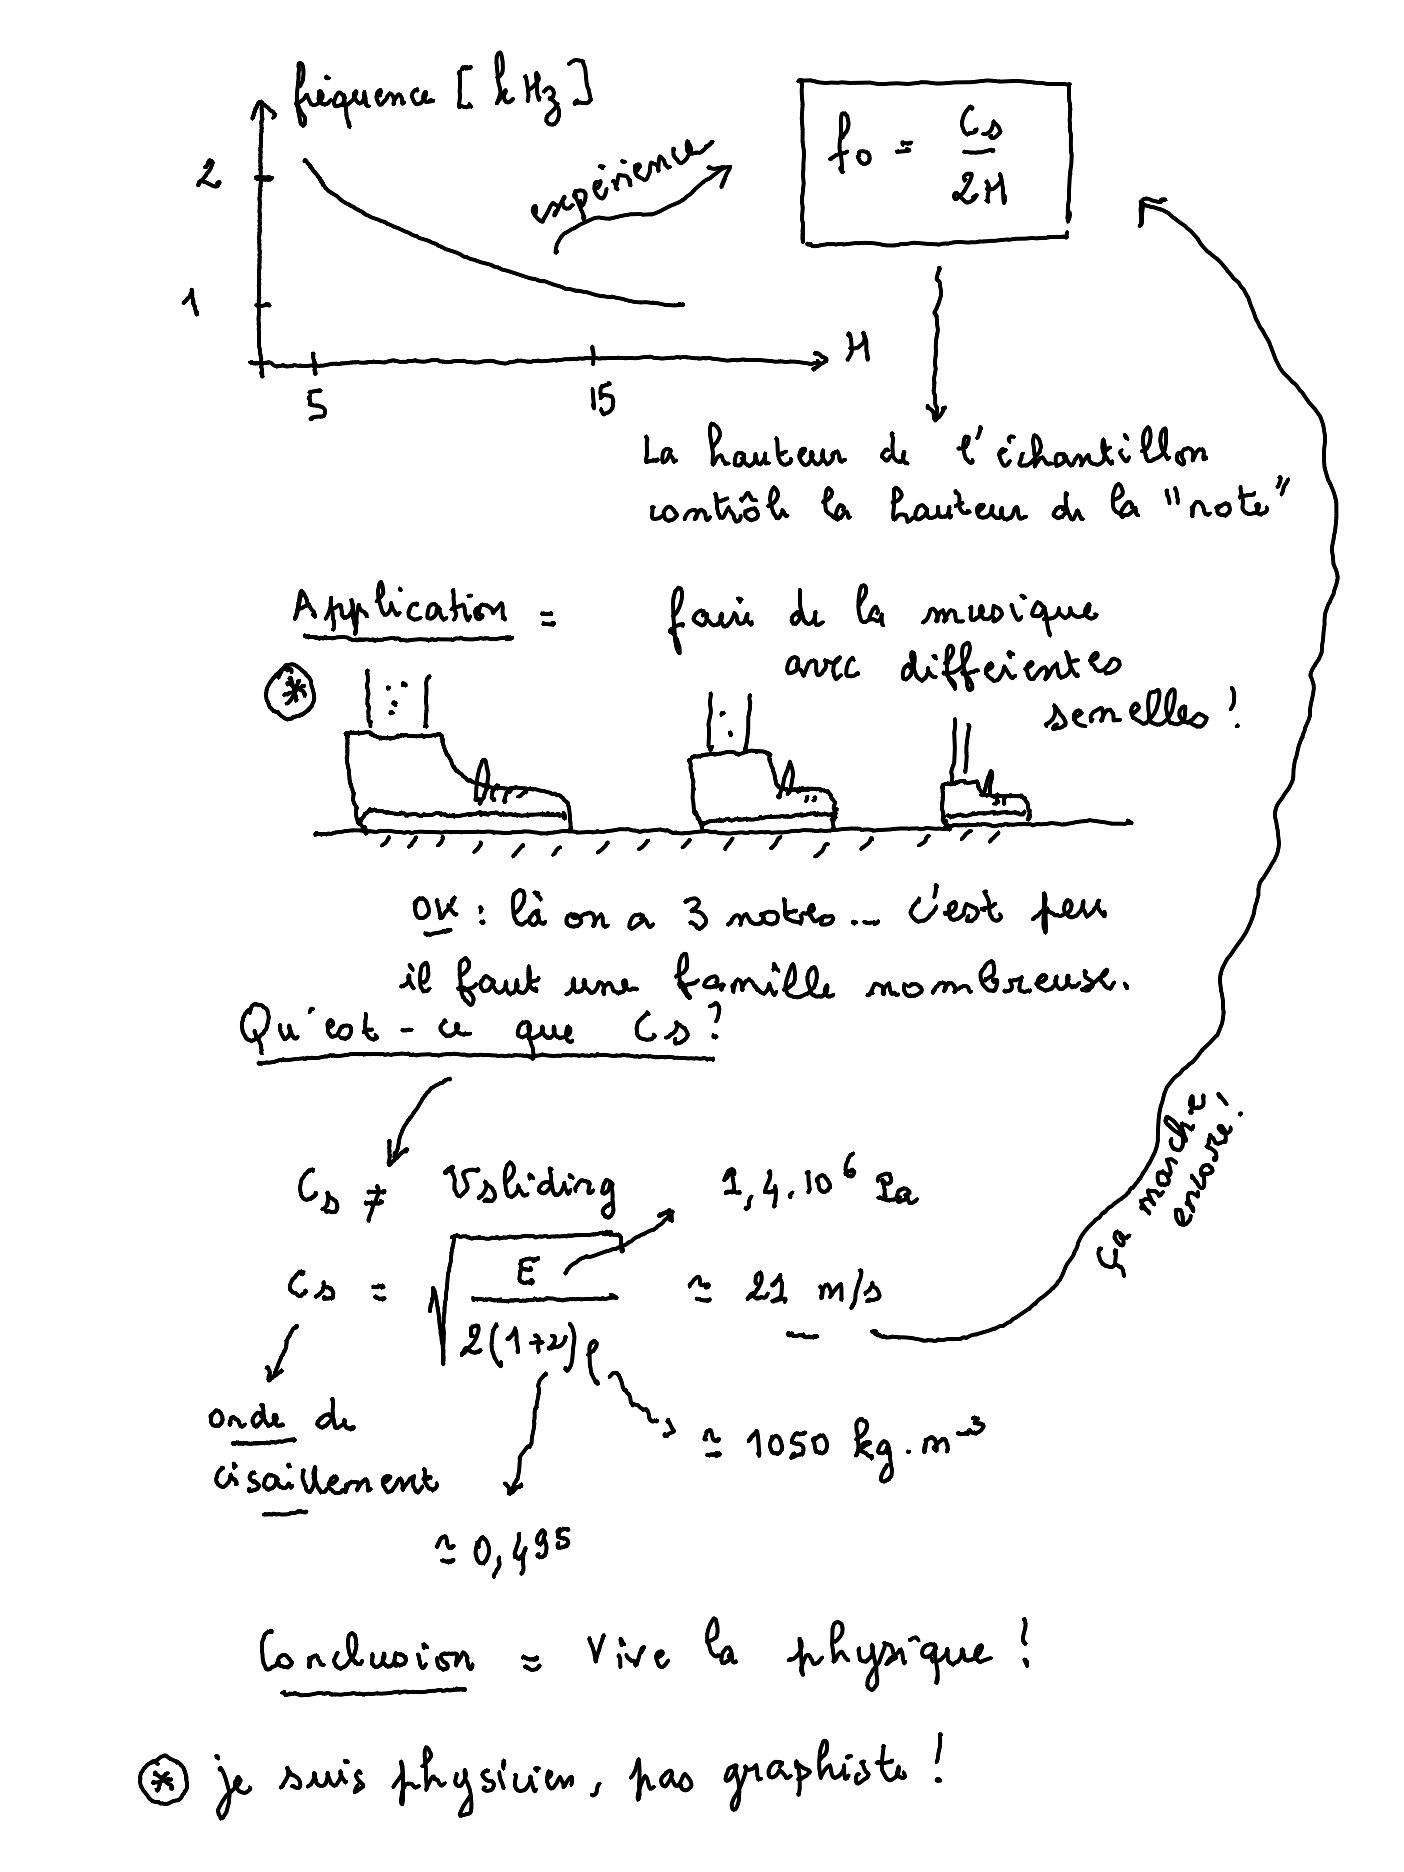 fréquence [kHz]
2
1
5
15
H
expérience
f0 = cs / 2H
La hauteur de l'échantillon
contrôle la hauteur de la "note"
Application =
faire de la musique
avec différentes
semelles !
*
OK : là on a 3 notes... c'est peu
il faut une famille nombreuse.
Qu'est-ce que Cs ?
Cs ≠ Vsliding
1,4.10⁶ Pa
Cs = √(E / 2(1+ν)ρ) ≃ 21 m/s
ça marche
encore !
onde de
cisaillement
≃ 1050 kg.m⁻³
≃ 0,495
Conclusion = Vive la physique !
* je suis physicien, pas graphiste !